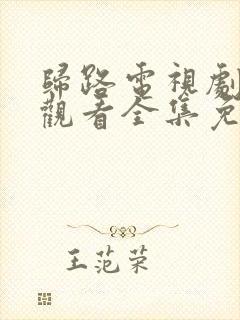 歸路電視劇
觀看全集免
王范荣